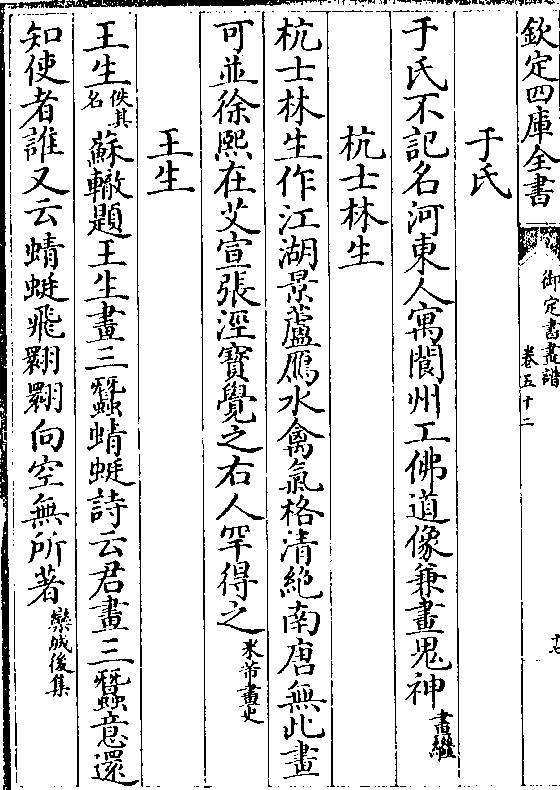 欽定四庫全書
御定書畫譜
卷五十二
十七
于氏
于氏不記名河東人寓閬州工佛道像兼畫鬼神畫繼
杭士林生
杭士林生作江湖景蘆鴈水禽氣格清絶南唐無此畫
可並徐熙在艾宣張涇寶覺之右人罕得之米芾畫史
王生
王生佚其名蘇轍題王生畫三蠶蜻蜓詩云君畫三蠶意還
知使者誰又云蜻蜓飛翾翾向空無所著欒城後集